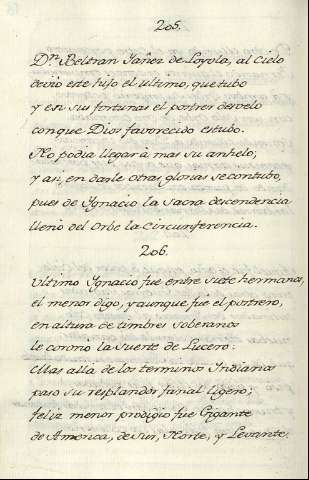 205.
Dn. Beltran Yañez de Loyola, al Cielo
devio este hijo el ultimo, que tubo
y en sus fortunas el postrer desvelo
conque Dios favorecido estubo.
No podia llegar à mas su anhelo;
y asi, en darle otras glorias se contubo,
pues de Ignacio la Sacra descendencia
lleno del Orbe la Circunferencia.
206.
Ultimo Ignacio fue entre siete hermanos,
el menor digo, y aunque fue el postrero,
en altura de timbres soberanos
le coronò la suerte de Lucero.
Mas alla de los terminos Indianos
paso su resplandor fanal ligero;
feliz menor prodigio fue Gigante
de America, de Sur, Norte, y Levante.